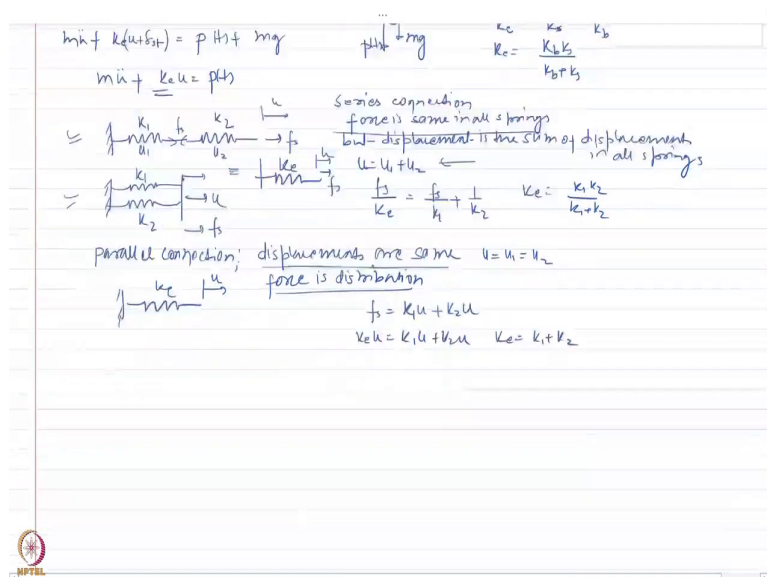 mü + ke(u+δst) = p(t) + mg
p(t) mg
ke ks kb
ke = kb ks / kb + ks
mü + ke u = p(t)
series connection
k1 fs k2 u
u1 u2 → fs
force is same in all springs
but displacement is the sum of displacement in all springs
≡ ke u fs
u = u1 + u2 ←
fs/ke = fs/k1 + 1/k2 ke = k1 k2 / k1 + k2
k1
u
k2 → fs
parallel connection; displacements are same u = u1 = u2
force is distribution
ke u
fs = k1u + k2u
ke u = k1u + k2u ke = k1 + k2
NPTEL